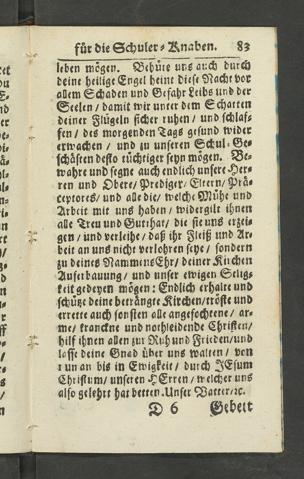 für die Schuler-Knaben. 83
leben mögen. Behüte uns auch durch
deine heilige Engel heint diese Nacht vor
allem Schaden und Gefahr Leibs und der
Seelen / damit wir unter dem Schatten
deiner Flügeln sicher ruhen / und schlaf-
fen / des morgenden Tags gesund wider
erwachen / und zu unseren Schul-Ge-
schäften desto tüchtiger seyn mögen. Be-
wahre und segne auch endlich unsere Her-
ren und Obere / Prediger / Eltern / Prä-
ceptores / und alle die / welche Mühe und
Arbeit mit uns haben / widergilt ihnen
alle Treu und Gutthat / die sie uns erzei-
gen / und verleihe / daß ihr Fleiß und Ar-
beit an uns nicht verlohren seye / sondern
zu deines Nammens Ehr / deiner Kirchen
Auferbauung / und unser ewigen Selig-
keit gedeyen mögen: Endlich erhalte und
schütze deine beträngte Kirchen / tröste und
errette auch sonsten alle angefochtene / ar-
me / kranckne und nothleidende Christen /
hilf ihnen allen zur Ruh und Frieden / und
lasse deine Gnad über uns walten / von
nun an bis in Ewigkeit / durch JEsum
Christum / unseren HErren / welcher uns
also gelehrt hat betten. Unser Vatter / ꝛc.
D 6 Gebett